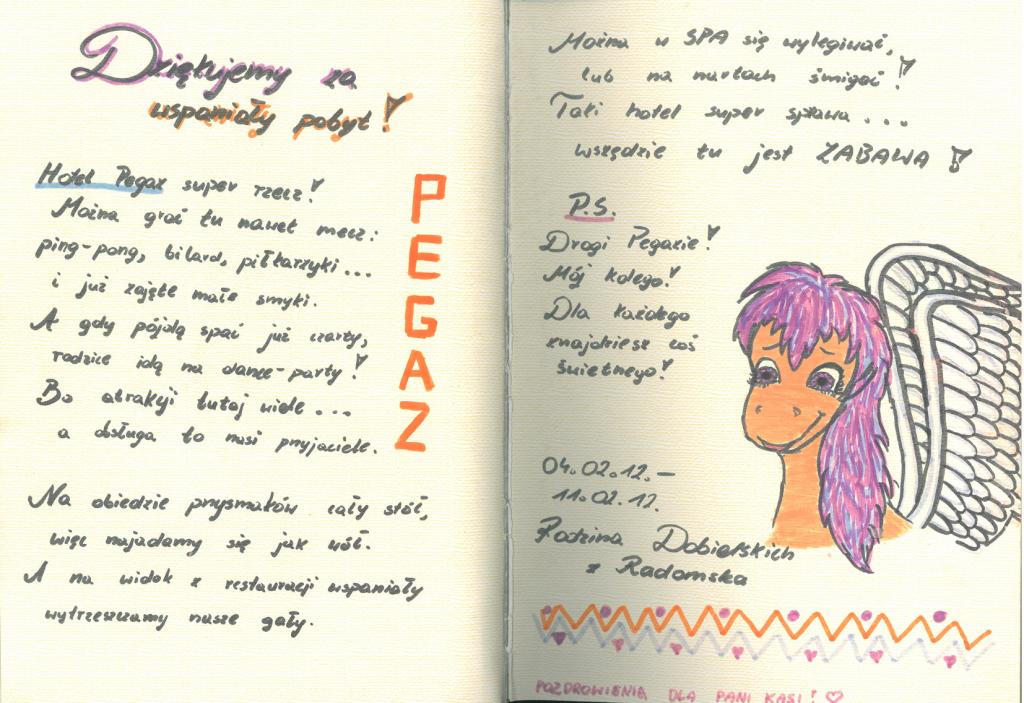 Dziękujemy za
wspaniały pobyt!
Hotel Pegaz super rzecz!
Można grać tu nawet mecz:
ping-pong, bilard, piłkarzyki...
i już zajęte małe smyki.
A gdy pójdą spać już czarty,
rodzice idą na dance-party!
Bo atrakcji tutaj wiele...
a obsługa to nasi przyjaciele.
PEGAZ
Na obiedzie przysmaków cały stół,
więc najadamy się jak wół.
A na widok z restauracji wspaniały
wytrzeszczamy nasze gały.
Można w SPA się wylegiwać,
lub na nartach śmigać!
Taki hotel super sprawa...
wszędzie tu jest ZABAWA!
P.S.
Drogi Pegazie!
Mój kolego!
Dla każdego
znajdziesz coś
świetnego!
04.02.12.-
11.02.12.
Rodzina Dobielskich
z Radomska
POZDROWIENIA DLA PANI KASI! ♡